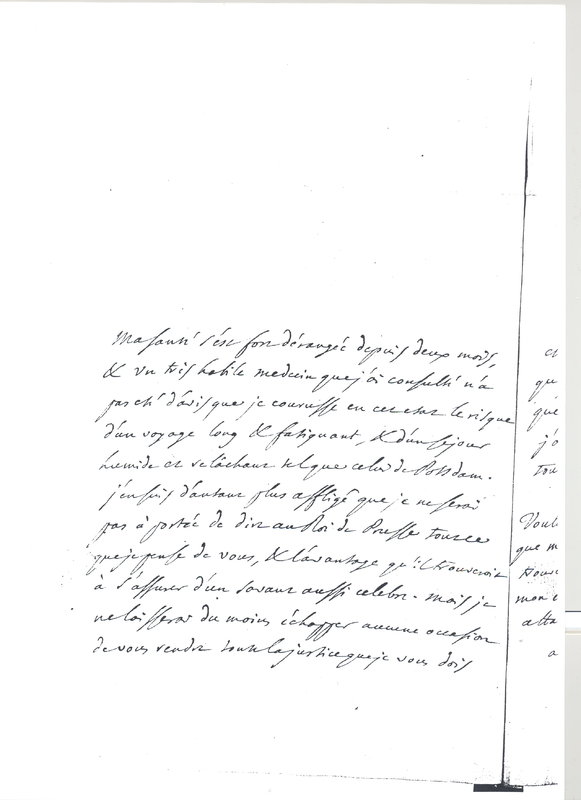 Ma santé s'est fort dérangée depuis deux mois,
& un très habile medecin que j'ai consulté n'a
pas été d'avis que je courusse en cet etat le risque
d'un voyage long & fatiguant, & d'un sejour
humide et relâchant tel que celui de Potsdam.
j'en suis d'autant plus affligé que je ne serai
pas à portée de dire au Roi de Prusse tout ce
que je pense de vous, & l'avantage qu'il trouveroit
à s'assurer d'un savant aussi celebre. mais je
ne laisserai du moins échapper aucune occasion
de vous rendre toute la justice que je vous dois
et
qu
que
j'o
tou
Voul
que m
trouv
mon
atta
a